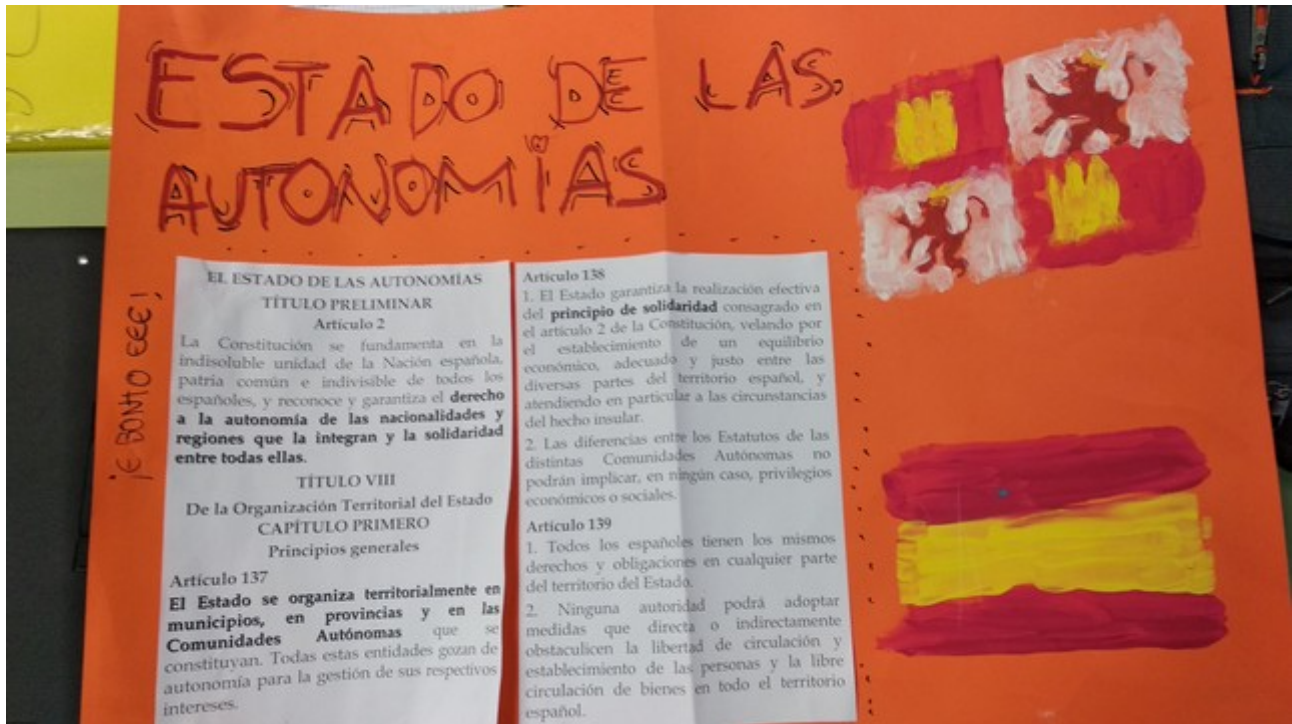 ESTADO DE LAS
AUTONOMÍAS
¡E BONTO EEE!
EL ESTADO DE LAS AUTONOMÍAS
TÍTULO PRELIMINAR
Artículo 2
La Constitución se fundamenta en la
indisoluble unidad de la Nación española,
patria común e indivisible de todos los
españoles, y reconoce y garantiza el derecho
a la autonomía de las nacionalidades y
regiones que la integran y la solidaridad
entre todas ellas.
TÍTULO VIII
De la Organización Territorial del Estado
CAPÍTULO PRIMERO
Principios generales
Artículo 137
El Estado se organiza territorialmente en
municipios, en provincias y en las
Comunidades Autónomas que se
constituyan. Todas estas entidades gozan de
autonomía para la gestión de sus respectivos
intereses.
Artículo 138
1. El Estado garantiza la realización efectiva
del principio de solidaridad consagrado en
el artículo 2 de la Constitución, velando por
el establecimiento de un equilibrio
económico, adecuado y justo entre las
diversas partes del territorio español, y
atendiendo en particular a las circunstancias
del hecho insular.
2. Las diferencias entre los Estatutos de las
distintas Comunidades Autónomas no
podrán implicar, en ningún caso, privilegios
económicos o sociales.
Artículo 139
1. Todos los españoles tienen los mismos
derechos y obligaciones en cualquier parte
del territorio del Estado.
2. Ninguna autoridad podrá adoptar
medidas que directa o indirectamente
obstaculicen la libertad de circulación y
establecimiento de las personas y la libre
circulación de bienes en todo el territorio
español.